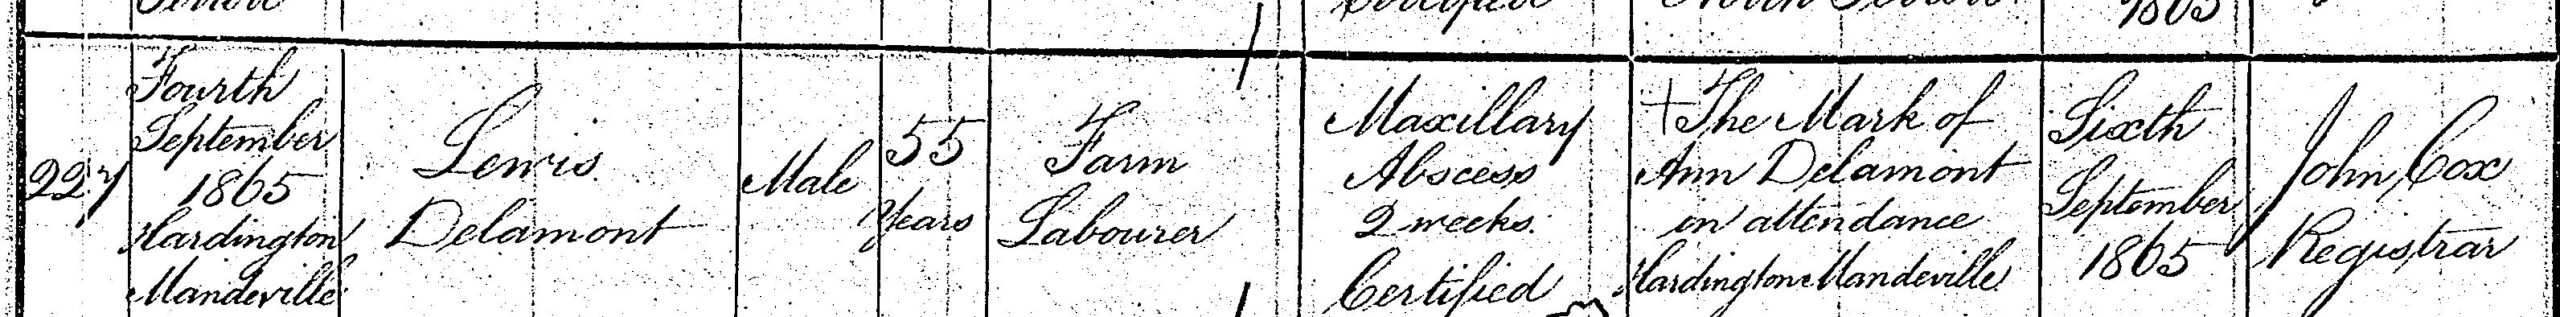 1865
227
Fourth
September
1865
Hardington
Mandeville
Lewis
Delamont
Male
55
Years
Farm
Labourer
Maxillary
Abscess
2 weeks.
Certified
+The Mark of
Ann Delamont
in attendance
Hardington Mandeville
Sixth
September
1865
John Cox
Registrar